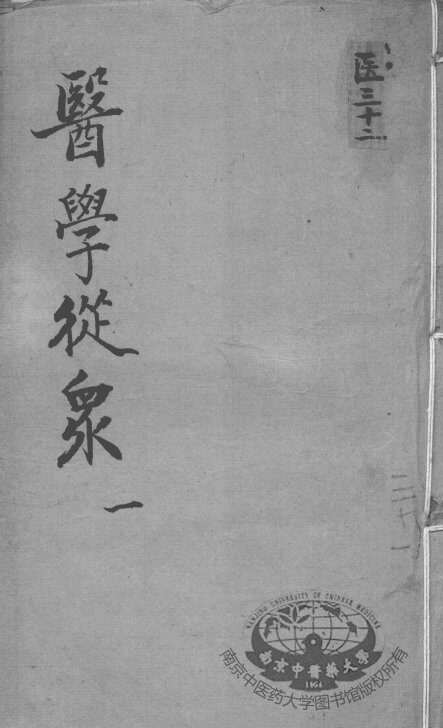 醫學從眾
一
医三十二
三十一
NANJING UNIVERSITY OF CHINESE MEDICINE
南京中醫藥大學
1954
南京中医药大学图书馆版权所有